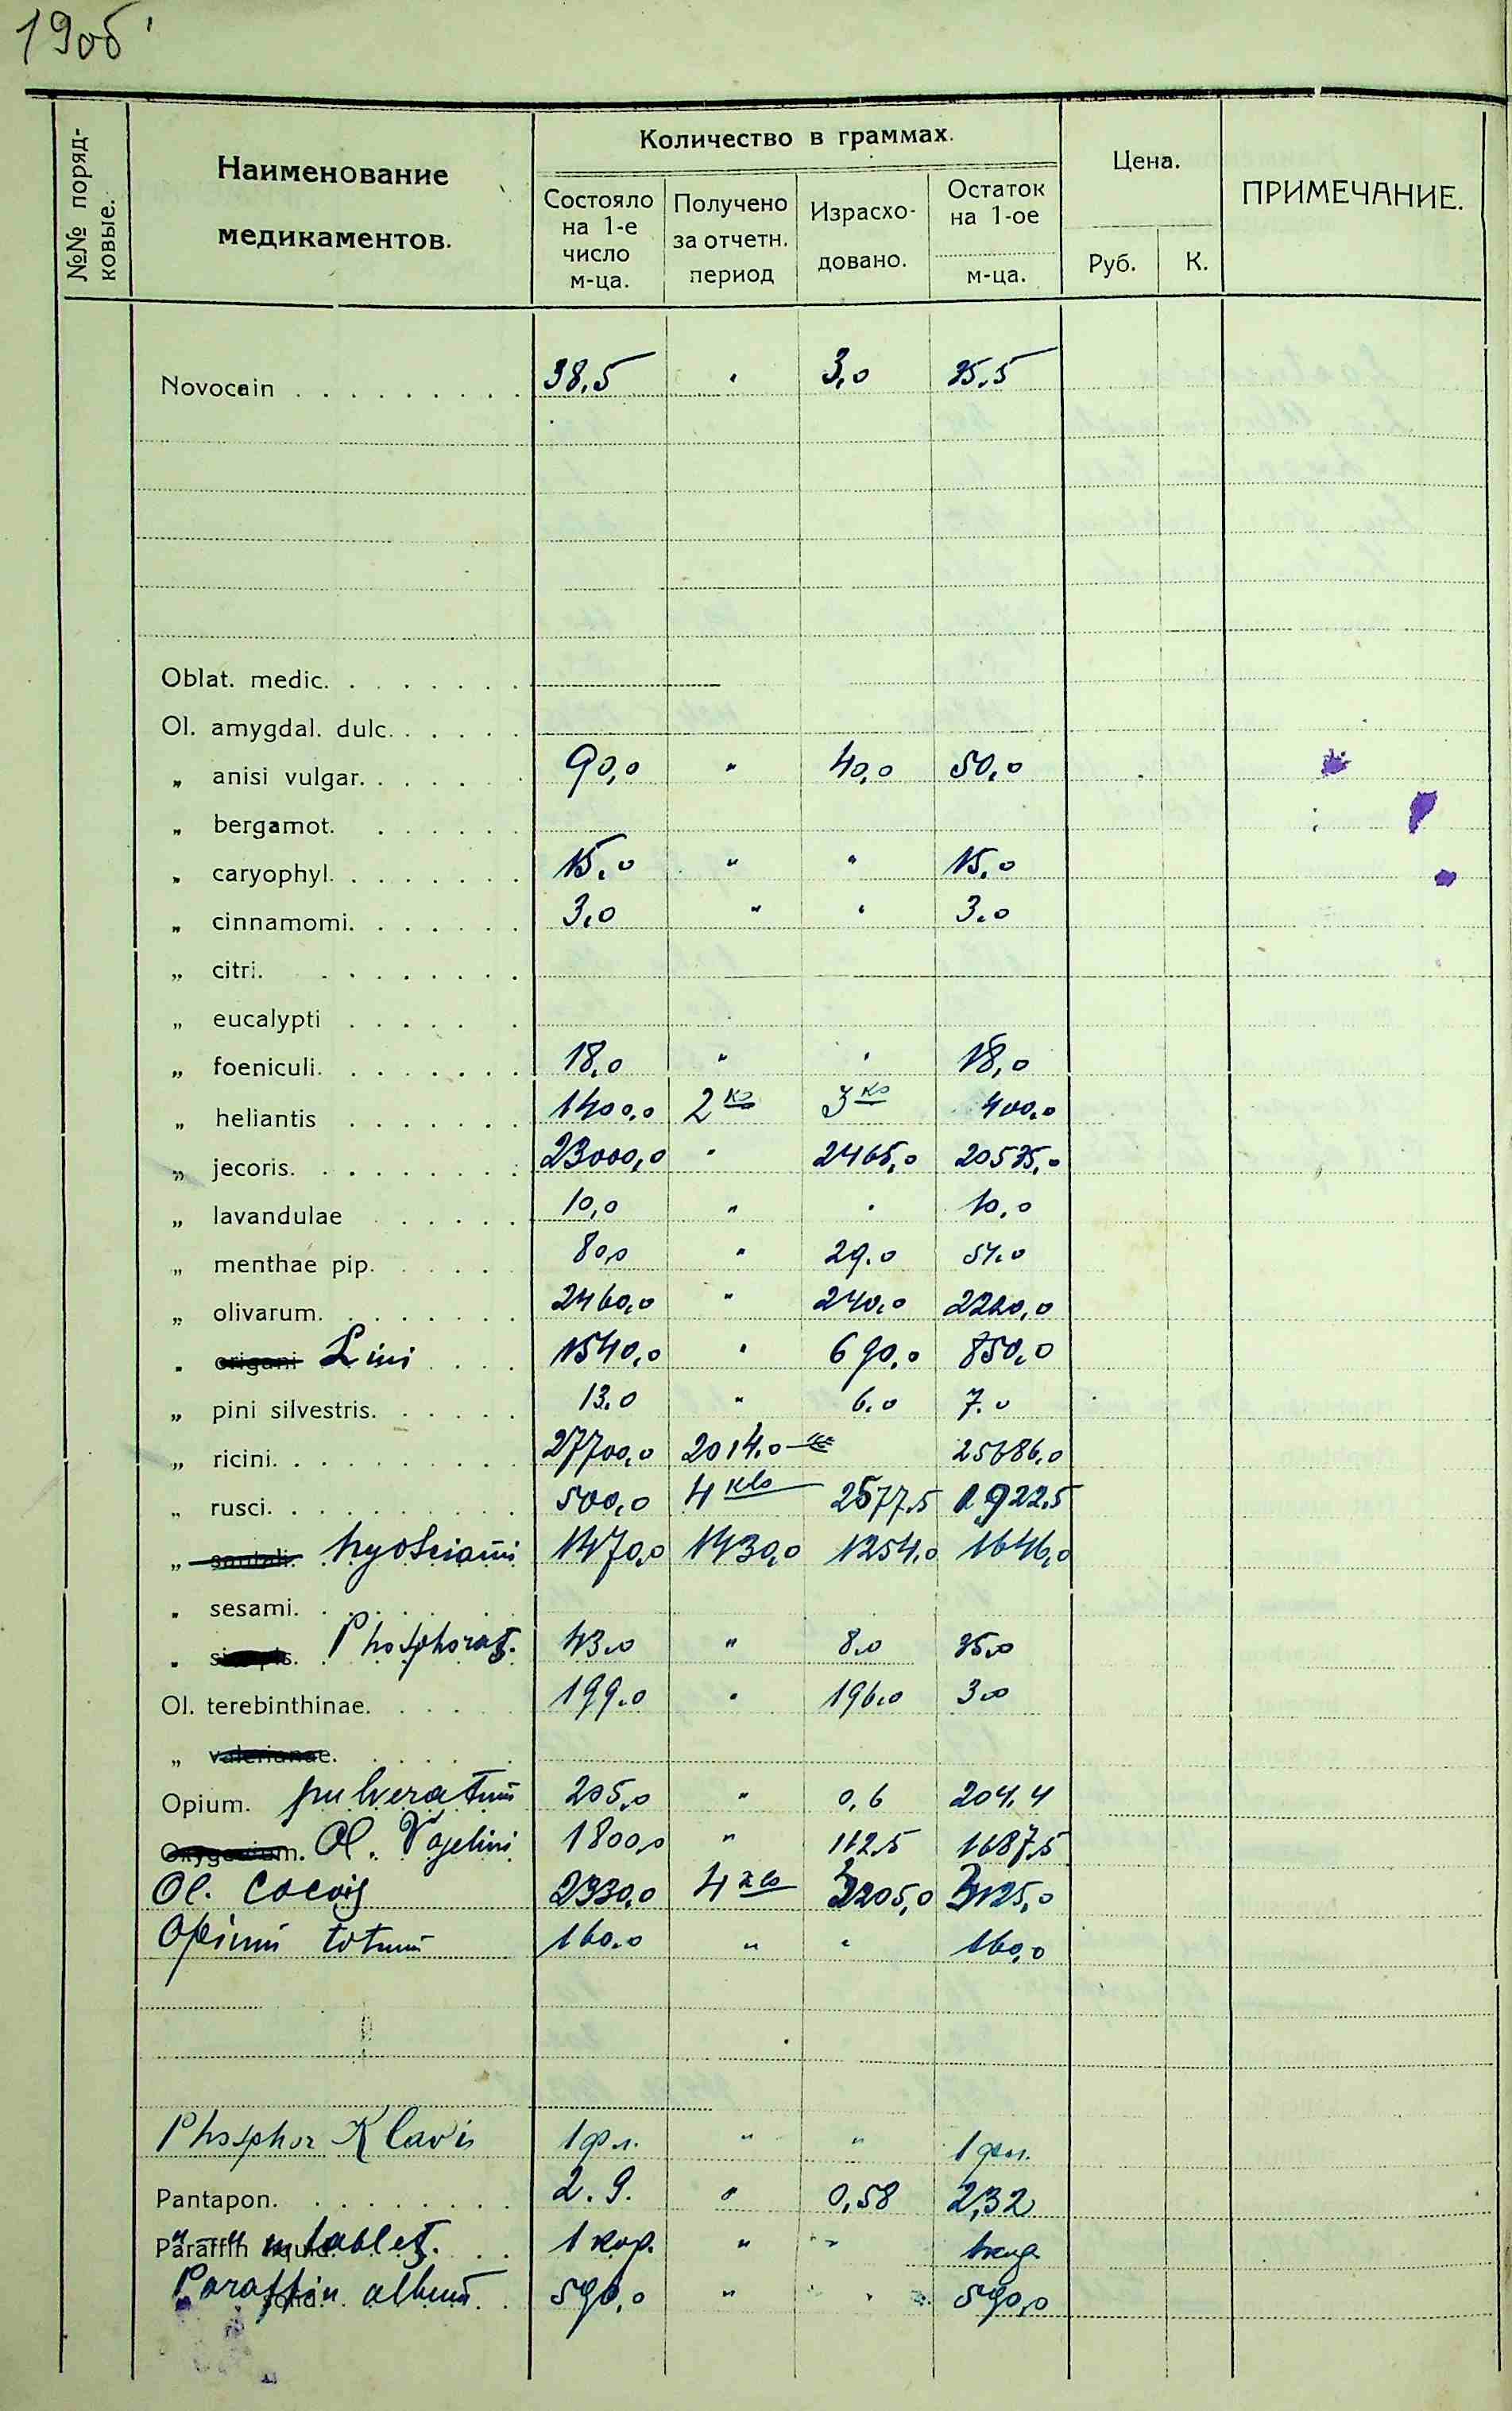 190б
№№ поряд-
ковые.
Наименование
медикаментов.
Количество в граммах.
Состояло
на 1-е
число
м-ца.
Получено
за отчетн.
период
Израсхо-
довано.
Остаток
на 1-ое
м-ца.
Цена.
Руб. К.
ПРИМЕЧАНИЕ.
Novocain . . . . . . . . . 38,5 " 3,0 35,5
Oblat. medic. . . . . . . .
Ol. amygdal. dulc. . . . . .
„ anisi vulgar. . . . . . 90,0 " 40,0 50,0
„ bergamot. . . . . . .
„ caryophyl. . . . . . . . 15,0 " " 15,0
„ cinnamomi. . . . . . . 3,0 " " 3,0
„ citri. . . . . . . . .
„ eucalypti . . . . . .
„ foeniculi. . . . . . . . 18,0 " " 18,0
„ heliantis . . . . . . . 1400,0 2 ко 3 ко 400,0
„ jecoris. . . . . . . . . 23000,0 " 2465,0 20535,0
„ lavandulae . . . . . . 10,0 " " 10,0
„ menthae pip. . . . . . 80,0 " 29,0 51,0
„ olivarum. . . . . . . . 2460,0 " 240,0 2220,0
„ origani Lini . . . . 1540,0 " 690,0 850,0
„ pini silvestris. . . . . . 13,0 " 6,0 7,0
„ ricini. . . . . . . . . . 27700,0 2014,0 25686,0
„ rusci. . . . . . . . . . 500,0 4 кло 2577,5 1922,5
„ santali. hyosciami 1470,0 1430,0 1254,0 1646,0
„ sesami. . . . . . .
„ sinapis. Phosphorat. 43,0 " 8,0 35,0
Ol. terebinthinae. . . . . . 199,0 " 196,0 3,0
„ valerianae. . . . . . .
Opium. pulveratum 205,0 " 0,6 204,4
Oxygenium. Ol. Vaselini 1800,0 " 112,5 1687,5
Ol. Cocois 2330,0 4 кло 3205,0 3125,0
Opium totum 160,0 " " 160,0
Phosphor Klavis 1 фл. " " 1 фл.
Pantapon. . . . . . . . . . 2.9. " 0,58 2,32
Paraffin liquid. " " in tablet. . . 1 кор. " " 1 кор.
Paraffin album solid. . . 590,0 " " 590,0